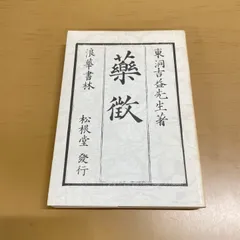 東洞吉益先生著
藥徴
浪華書林
松根堂發行